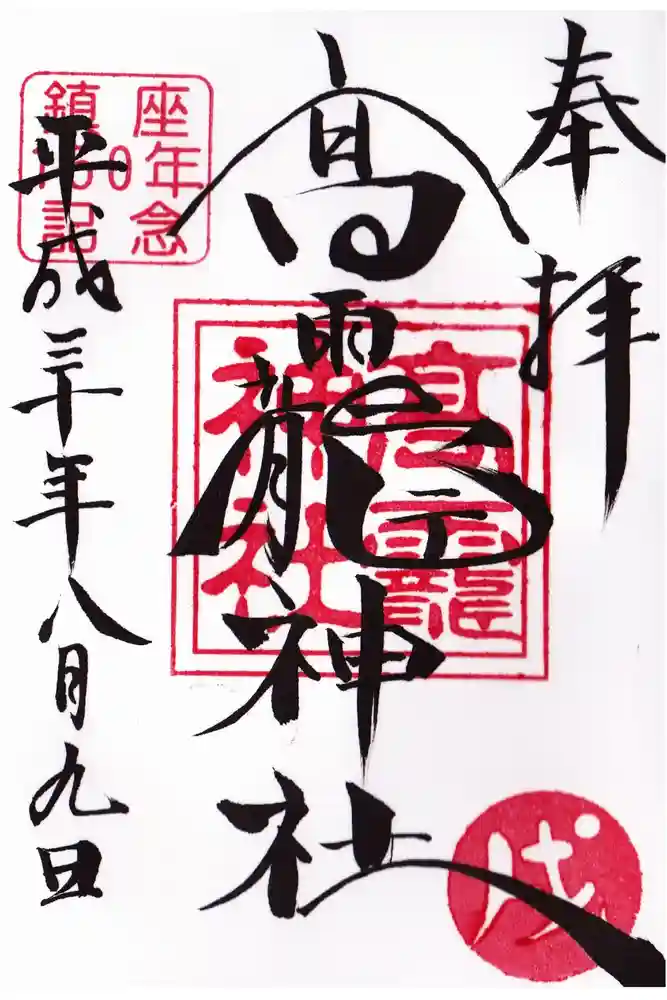 奉拝
高龗神社
平成三十年八月九日
高龗
神社
鎮座
年
記念